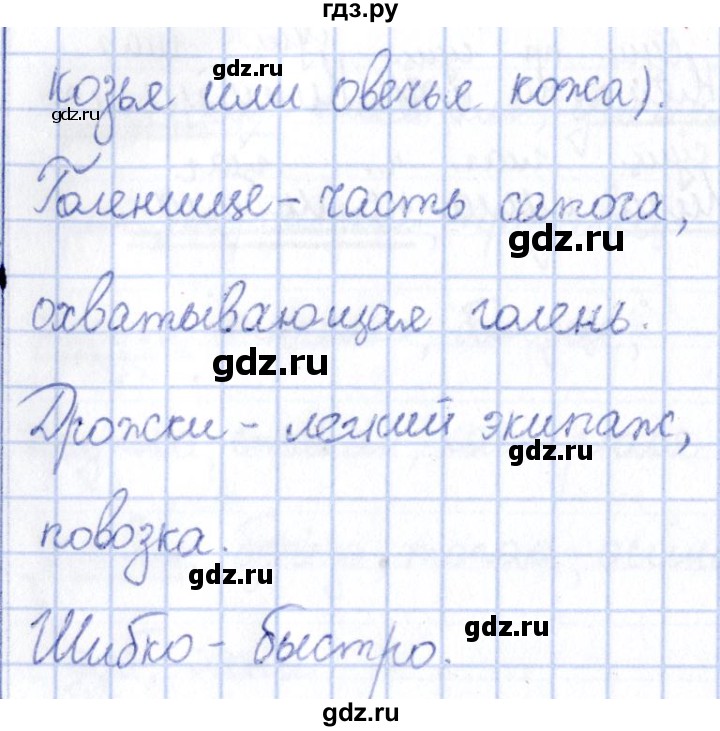 гдз.ру
gdz.ru
козья или овечья кожа).
gdz.ru
Голенище - часть сапога,
gdz.ru
охватывающая голень.
gdz.ru
Дрожки - легкий экипаж,
gdz.ru
повозка.
gdz.ru
Шибко - быстро.
gdz.ru
gdz.ru